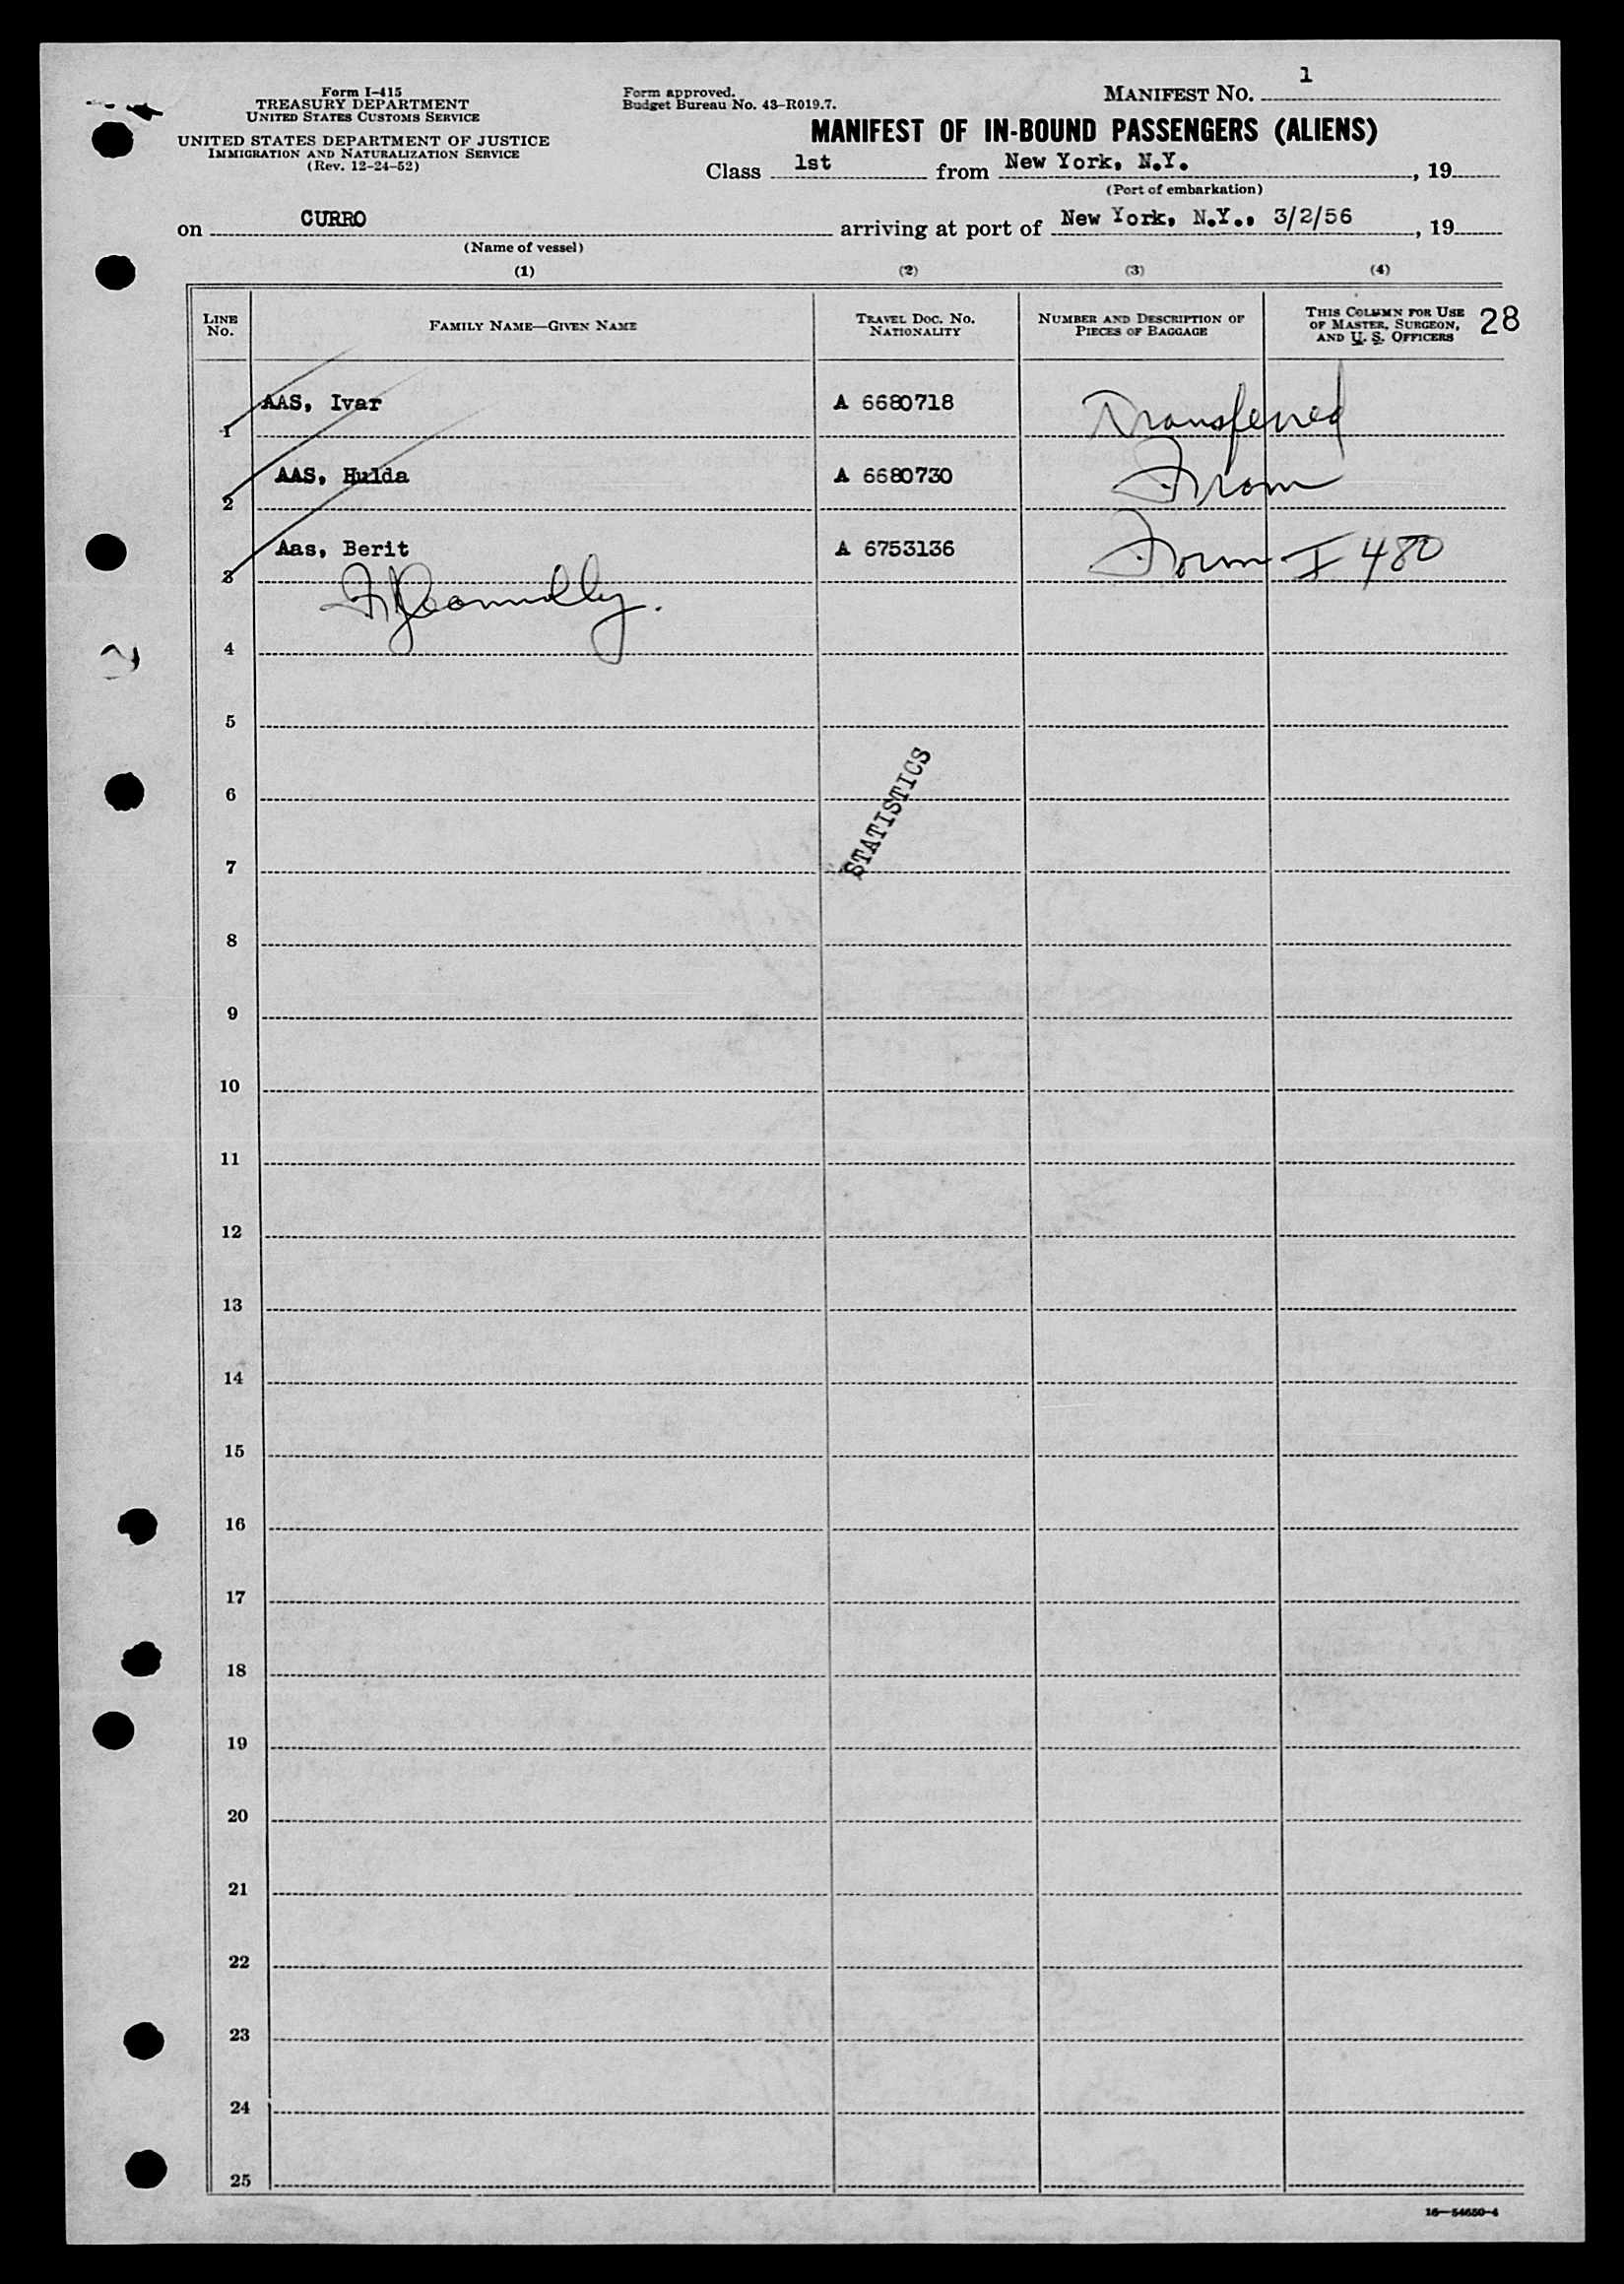 1
Form I-415
TREASURY DEPARTMENT
UNITED STATES CUSTOMS SERVICE
UNITED STATES DEPARTMENT OF JUSTICE
IMMIGRATION AND NATURALIZATION SERVICE
(Rev. 12-24-52)
Form approved.
Budget Bureau No. 43-R019.7.
MANIFEST NO.
MANIFEST OF IN-BOUND PASSENGERS (ALIENS)
Class 1st from New York, N.Y. , 19
(Port of embarkation)
on CURRO arriving at port of New York, N.Y., 3/2/56 , 19
(Name of vessel)
(1) (2) (3) (4)
LINE NO. FAMILY NAME—GIVEN NAME TRAVEL DOC. NO. NATIONALITY NUMBER AND DESCRIPTION OF PIECES OF BAGGAGE THIS COLUMN FOR USE OF MASTER, SURGEON, AND U. S. OFFICERS 28
1 AAS, Ivar A 6680718 Transferred
2 AAS, Hulda A 6680730 From
3 Aas, Berit A 6753136 Form I 480
4
5
6
STATISTICS
7
8
9
10
11
12
13
14
15
16
17
18
19
20
21
22
23
24
25
16—54650-4